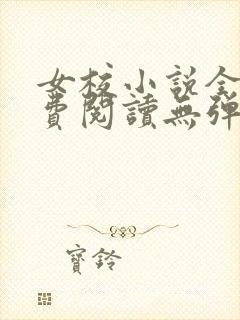 女校小说全
費閱讀無彈
寶鈴